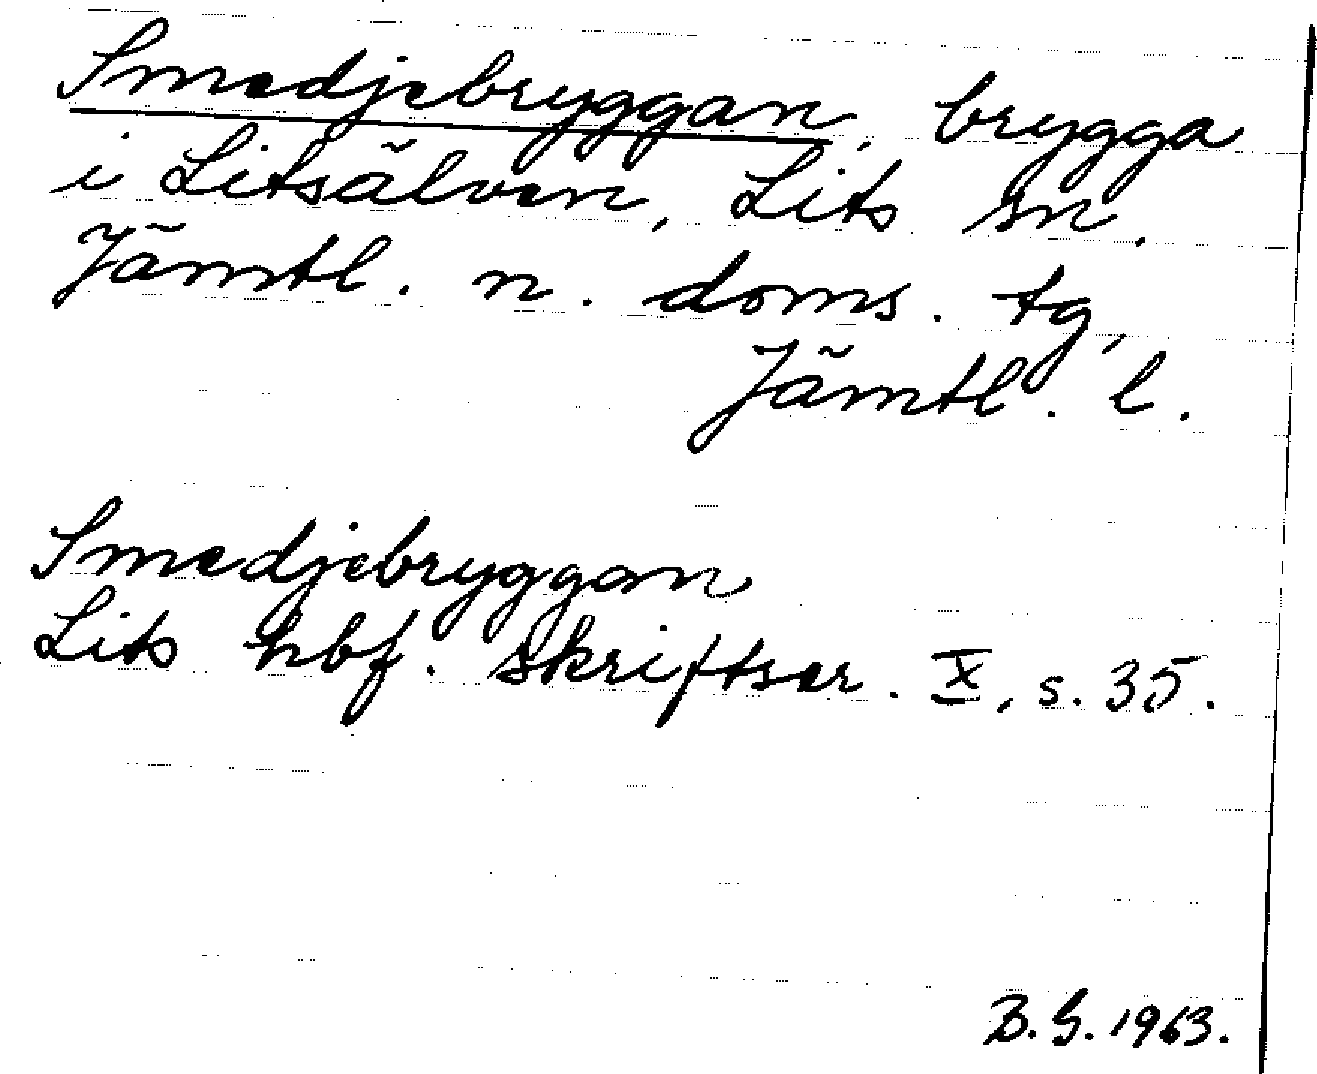 Smedjebryggan, brygga
i Litsälven, Lits sn.
Jämtl. n. doms. tg,
Jämtl. l.
Smedjebryggan
Lits hbf. skriftser. X, s. 35.
B. G. 1963.